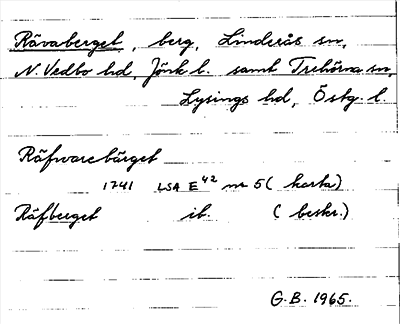 Rävaberget, berg, Linderås sn,
N. Vedbo hd, Jönk. l. samt Trehörna sn,
Lysings hd, Östg. l.
Räfwarebärget
1741 LSA E42 nr 5 (karta)
Räfberget ib. (beskr.)
G.B. 1965.